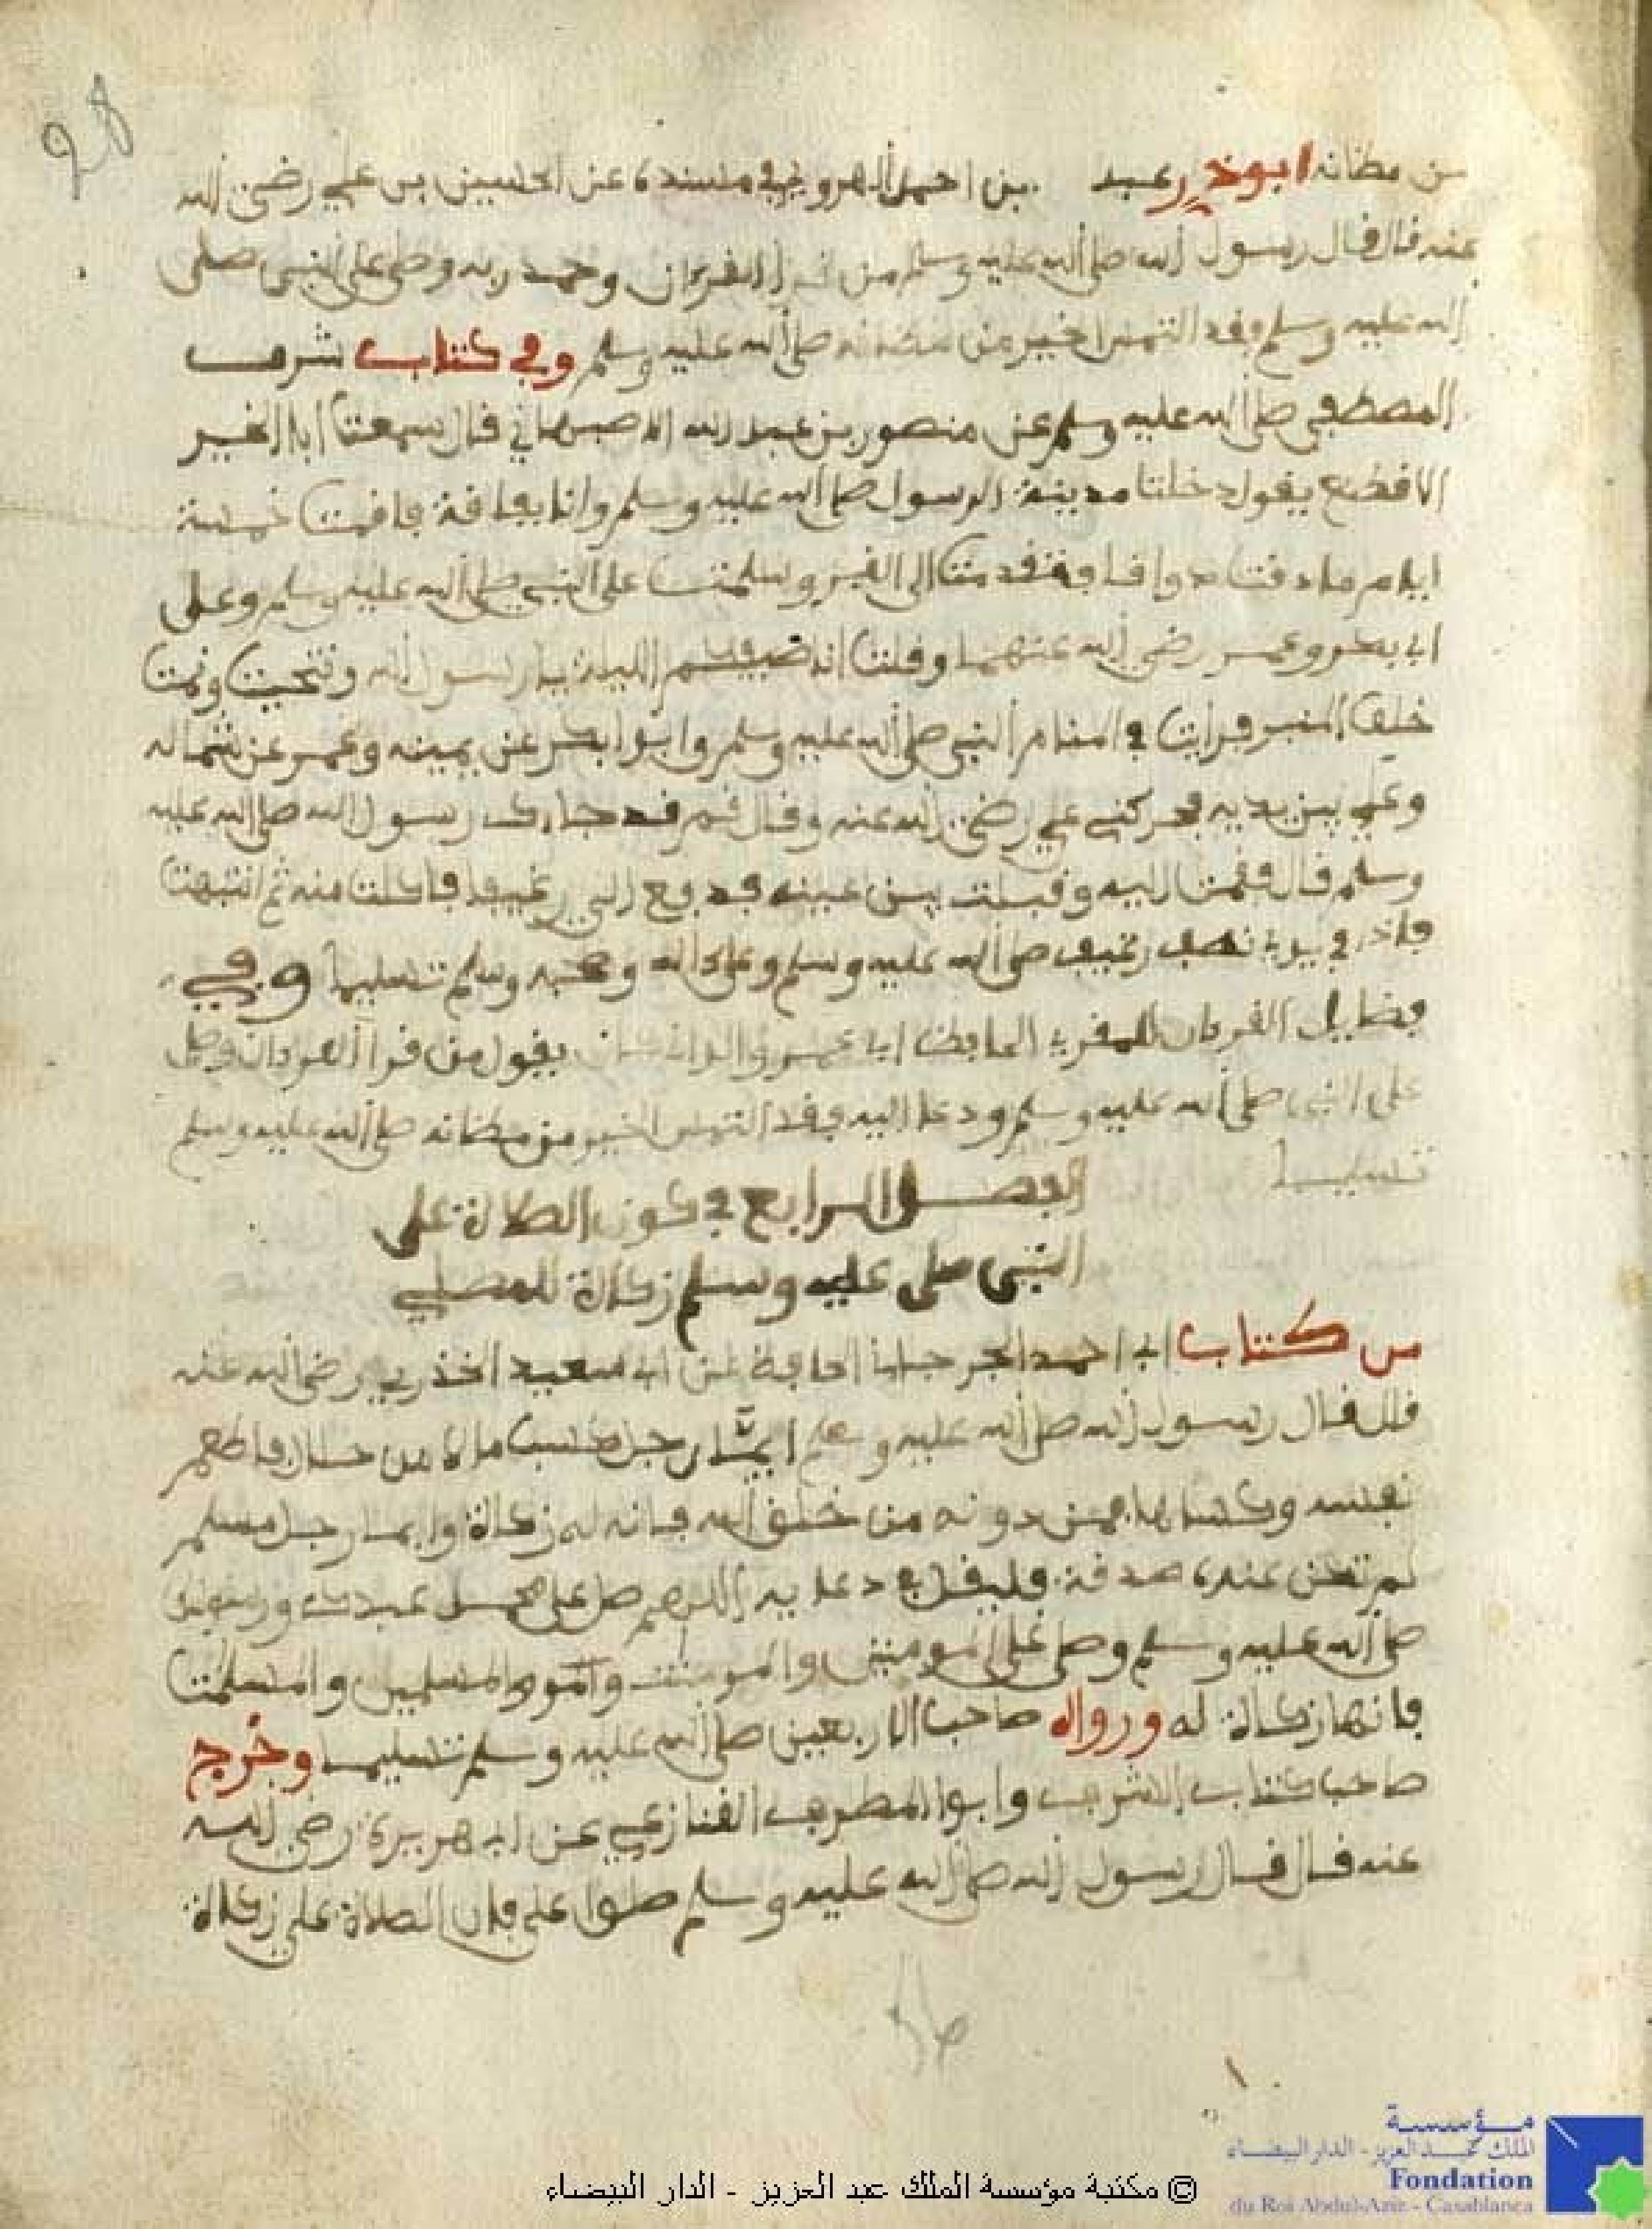 28
من مظانه ابو ذر عبد بن احمد الهروي في مسنده عن الحسين بن علي رضي الله
عنه قال قال رسول الله صلى الله عليه وسلم من قرا القرءان وحمد ربه وصلى على النبي صلى
الله عليه وسلم فقد التمس الخير من مظانه صلى الله عليه وسلم وفي كتاب شرف
المصطفى صلى الله عليه وسلم عن منصور بن عبد الله الاصبهاني قال سمعت ابا الخير
الاقطع يقول دخلت مدينة الرسول صلى الله عليه وسلم وانا بفاقة فاقمت خمسة
ايام ما دقت دواقا فتقدمت الى القبر وسلمت على النبي صلى الله عليه وسلم وعلى
ابي بكر وعمر رضي الله عنهما وقلت انا ضيفكم الليلة يا رسول الله وتنحيت ونمت
خلف المنبر فرايت في المنام النبي صلى الله عليه وسلم وابوا بكر عن يمينه وعمر عن شماله
وعلي بين يديه فحركني علي رضي الله عنه وقال قم قد جاءك رسول الله صلى الله عليه
وسلم قال فقمت اليه وقبلت بين عينيه فدفع الي رغيفا فاكلت منه ثم انتبهت
فاذا في يدي نصف رغيف صلى الله عليه وسلم وعلى ءاله وصحبه وسلم تسليما وفي
فضايل القرءان للمقرئ الحافظ ابا عمرو الداني كان يقول من قرا القرءان وصلى
على النبي صلى الله عليه وسلم ودعا اليه فقد التمس الخير من مظانه صلى الله عليه وسلم
تسليما
الفصل الرابع في كون الصلاة على
النبي صلى عليه وسلم زكاة للمصلي
من كتاب ابي احمد الجرجاني الحافظ عن ابي سعيد الخذري رضي الله عنه
قال قال رسول الله صلى الله عليه وسلم ايما رجل كسب مالا من حلال فاطعم
نفسه وكساها فمن دونه من خلق الله فانه له زكاة وايما رجل مسلم
لم تكن عنده صدقة فليقل في دعايه اللهم صل على محمد عبدك ورسولك
صلى الله عليه وسلم وصلى على المومنين والمومنت والمسلمين والمسلمت
فانها زكاة له ورواه صاحب الاربعين صلى الله عليه وسلم تسليما وخرج
صاحب كتاب الشرف وابوا المطرف القنازعي عن ابي هريرة رضي الله
عنه قال قال رسول الله صلى الله عليه وسلم صلوا علي فان الصلاة علي زكاة
مؤسسة
الملك عبد العزيز - الدار البيضاء
Fondation
du Roi Abdul-Aziz - Casablanca
© مكتبة مؤسسة الملك عبد العزيز - الدار البيضاء